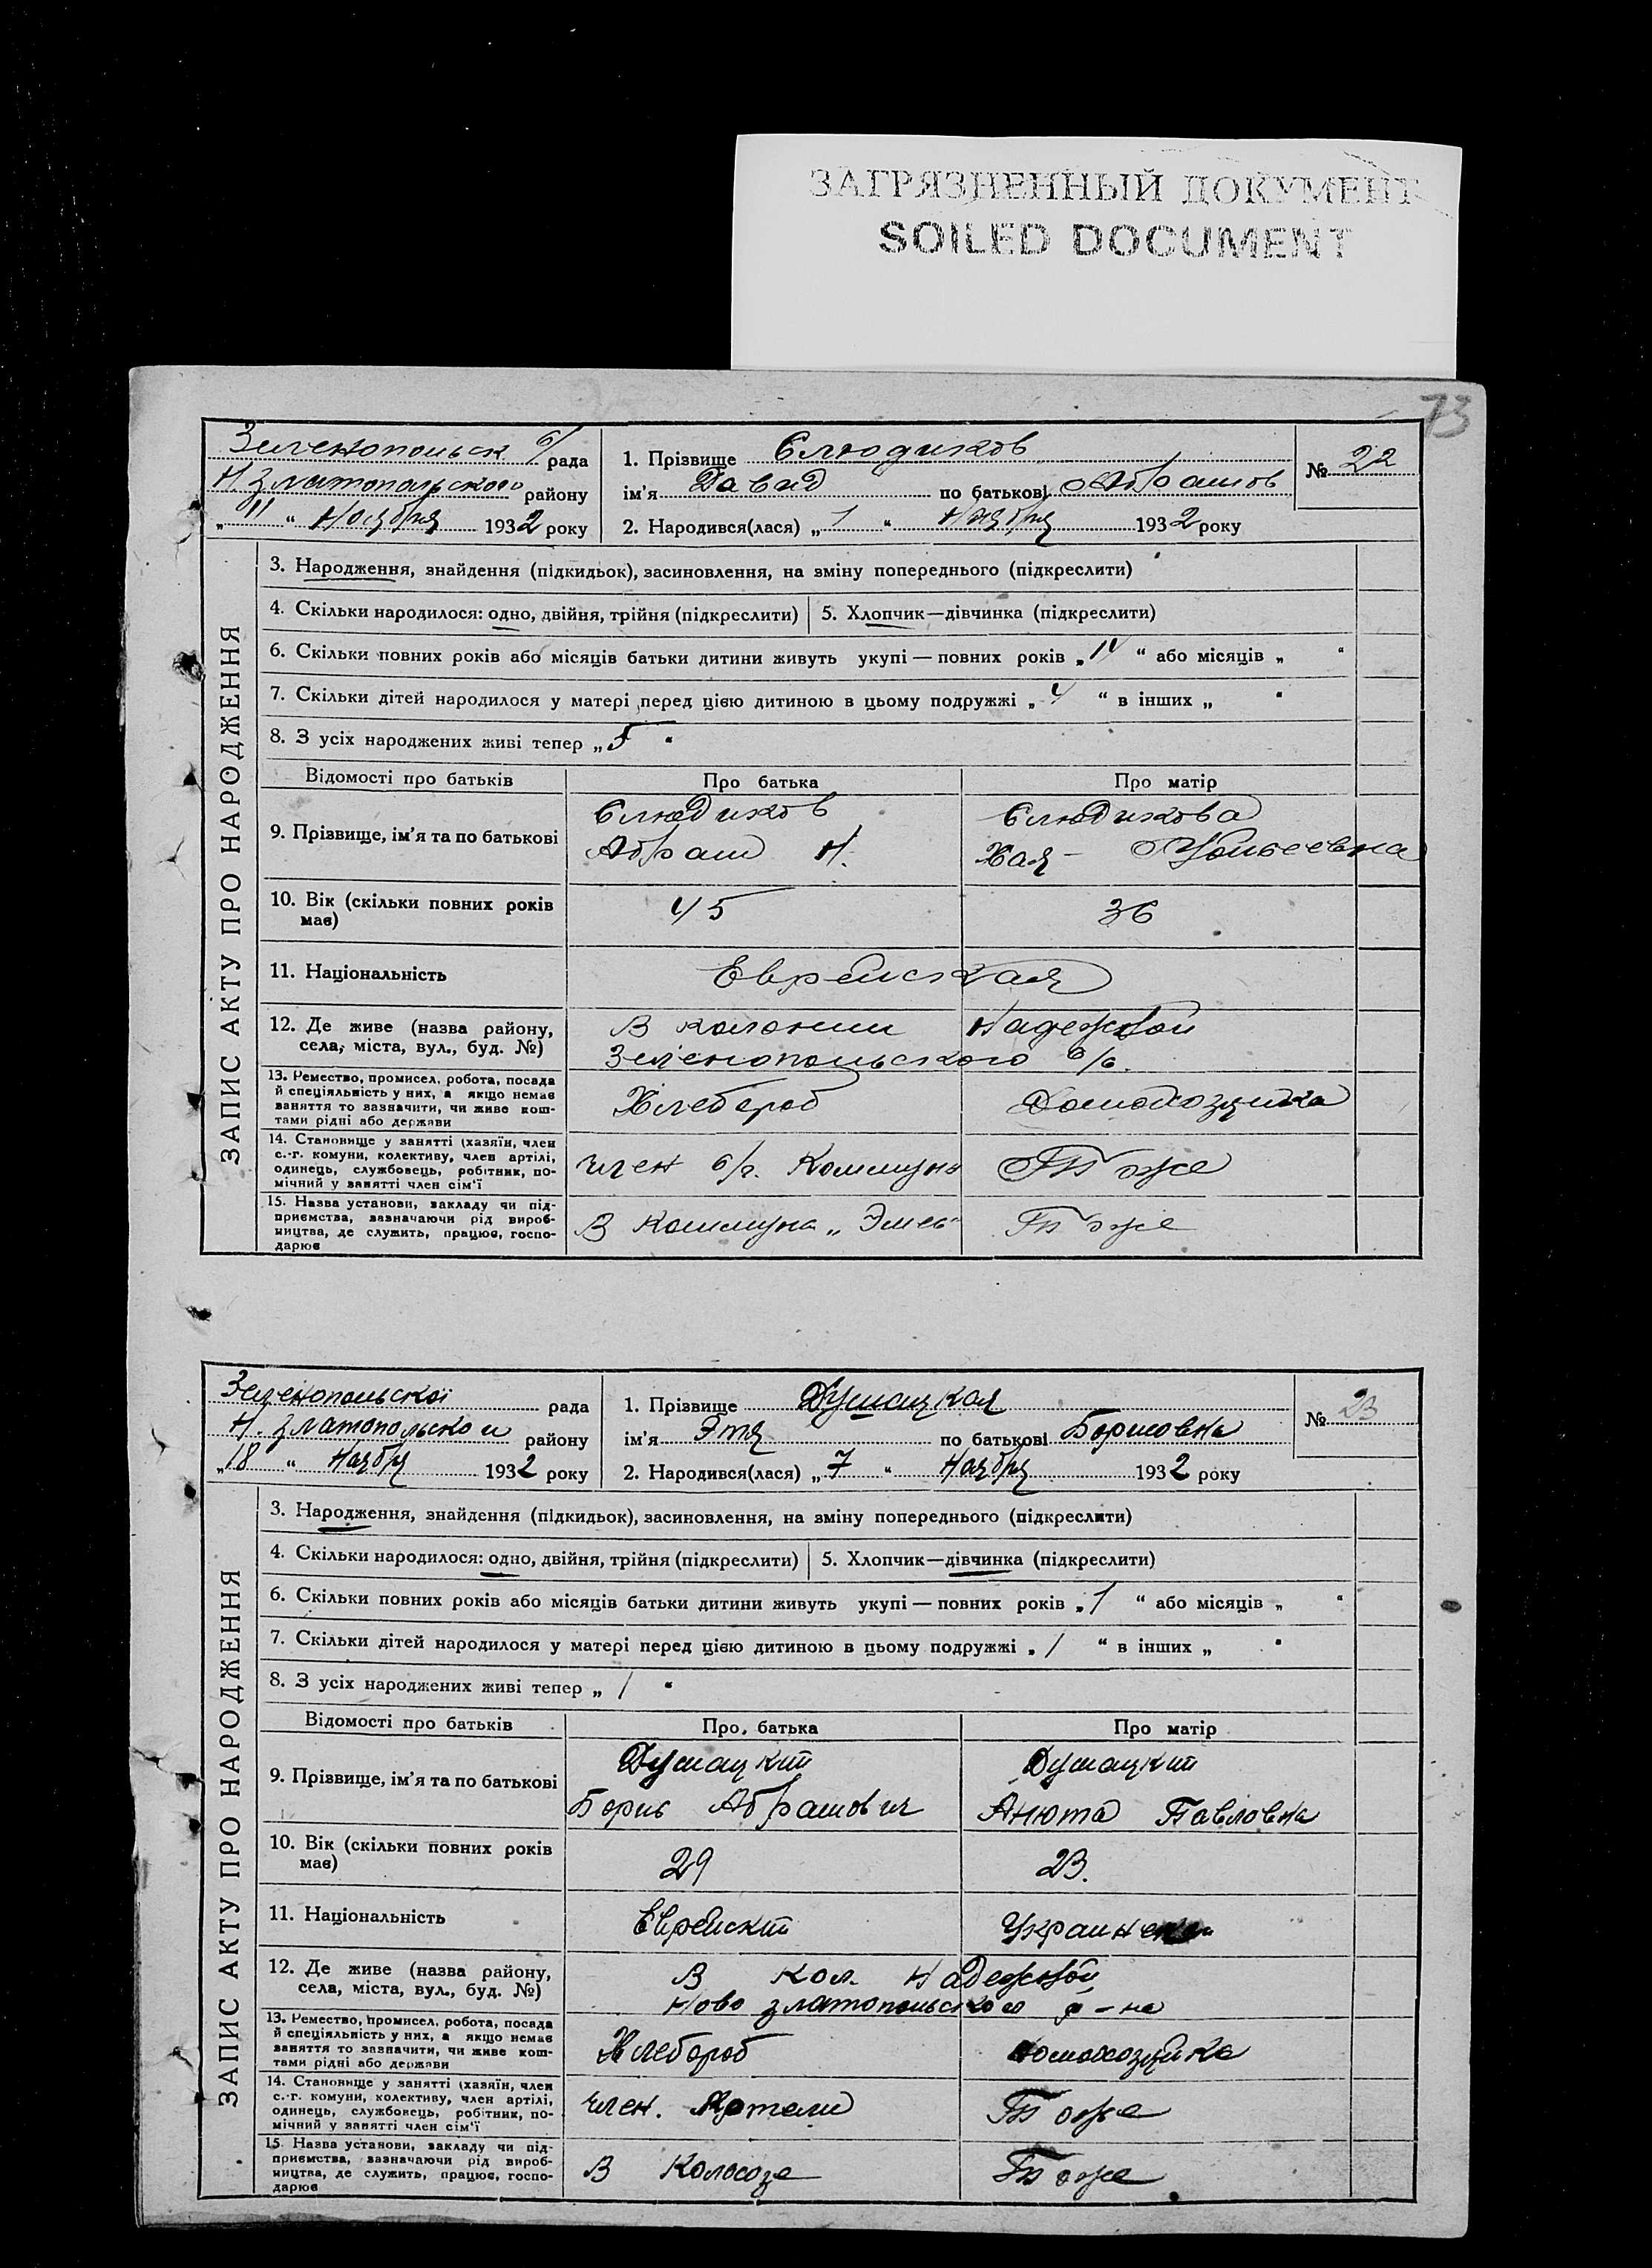 ЗАГРЯЗНЕННЫЙ ДОКУМЕНТ
SOILED DOCUMENT
73
Зеленопольск с/ рада
Н. Златопольского району
„11“ Ноября 1932 року
1. Прізвище Слюдиков
ім'я Давид по батькові Абрамов
2. Народився(лася) „1“ Ноября 1932 року
№ 22
ЗАПИС АКТУ ПРО НАРОДЖЕННЯ
3. Народження, знайдення (підкидьок), засиновлення, на зміну попереднього (підкреслити)
4. Скільки народилося: одно, двійня, трійня (підкреслити) 5. Хлопчик—дівчинка (підкреслити)
6. Скільки повних років або місяців батьки дитини живуть укупі — повних років „ “ або місяців „ “
7. Скільки дітей народилося у матері перед цією дитиною в цьому подружжі „4“ в інших „ “
8. З усіх народжених живі тепер „5“
Відомості про батьків Про батька Про матір
9. Прізвище, ім'я та по батькові
Слюдиков Слюдикова
Абрам Н. Хая-
10. Вік (скільки повних років має) 45 36
11. Національність Еврейская
12. Де живе (назва району, села, міста, вул., буд. №)
В колонии Надежной
Зеленопольского с/с.
13. Ремество, промисел, робота, посада
й спеціяльність у них, а якщо немає
заняття то зазначити, чи живе кош-
тами рідні або держави
Хлебороб Домохозяйка
14. Становище у занятті (хазяїн, член
с.-г. комуни, колективу, член артілі,
одинець, службовець, робітник, по-
мічний у занятті член сім'ї
член с/г. Коммуна То же
15. Назва установи, закладу чи під-
приємства, зазначаючи рід вироб-
ництва, де служить, працює, госпо-
дарює
В Коммуна „Эмес“ То же
Зеленопольской рада
Н. Златопольской району
„18“ Ноября 1932 року
1. Прізвище Душацкая
ім'я Этя по батькові Борисовна
2. Народився(лася) „7“ Ноября 1932 року
№ 23
ЗАПИС АКТУ ПРО НАРОДЖЕННЯ
3. Народження, знайдення (підкидьок), засиновлення, на зміну попереднього (підкреслити)
4. Скільки народилося: одно, двійня, трійня (підкреслити) 5. Хлопчик—дівчинка (підкреслити)
6. Скільки повних років або місяців батьки дитини живуть укупі — повних років „1“ або місяців „ “
7. Скільки дітей народилося у матері перед цією дитиною в цьому подружжі „1“ в інших „ “
8. З усіх народжених живі тепер „1“
Відомості про батьків Про батька Про матір
9. Прізвище, ім'я та по батькові
Душацкий Душацкий
Борис Абрамович Анюта Павловна
10. Вік (скільки повних років має) 29 23.
11. Національність Еврейский
12. Де живе (назва району, села, міста, вул., буд. №)
В Кол. Надежной
Ново златопольского р-на
13. Ремество, промисел, робота, посада
й спеціяльність у них, а якщо немає
заняття то зазначити, чи живе кош-
тами рідні або держави
Хлебороб домохозяйка
14. Становище у занятті (хазяїн, член
с.-г. комуни, колективу, член артілі,
одинець, службовець, робітник, по-
мічний у занятті член сім'ї
член. Артели То же
15. Назва установи, закладу чи під-
приємства, зазначаючи рід вироб-
ництва, де служить, працює, госпо-
дарює
В Колхозе То же